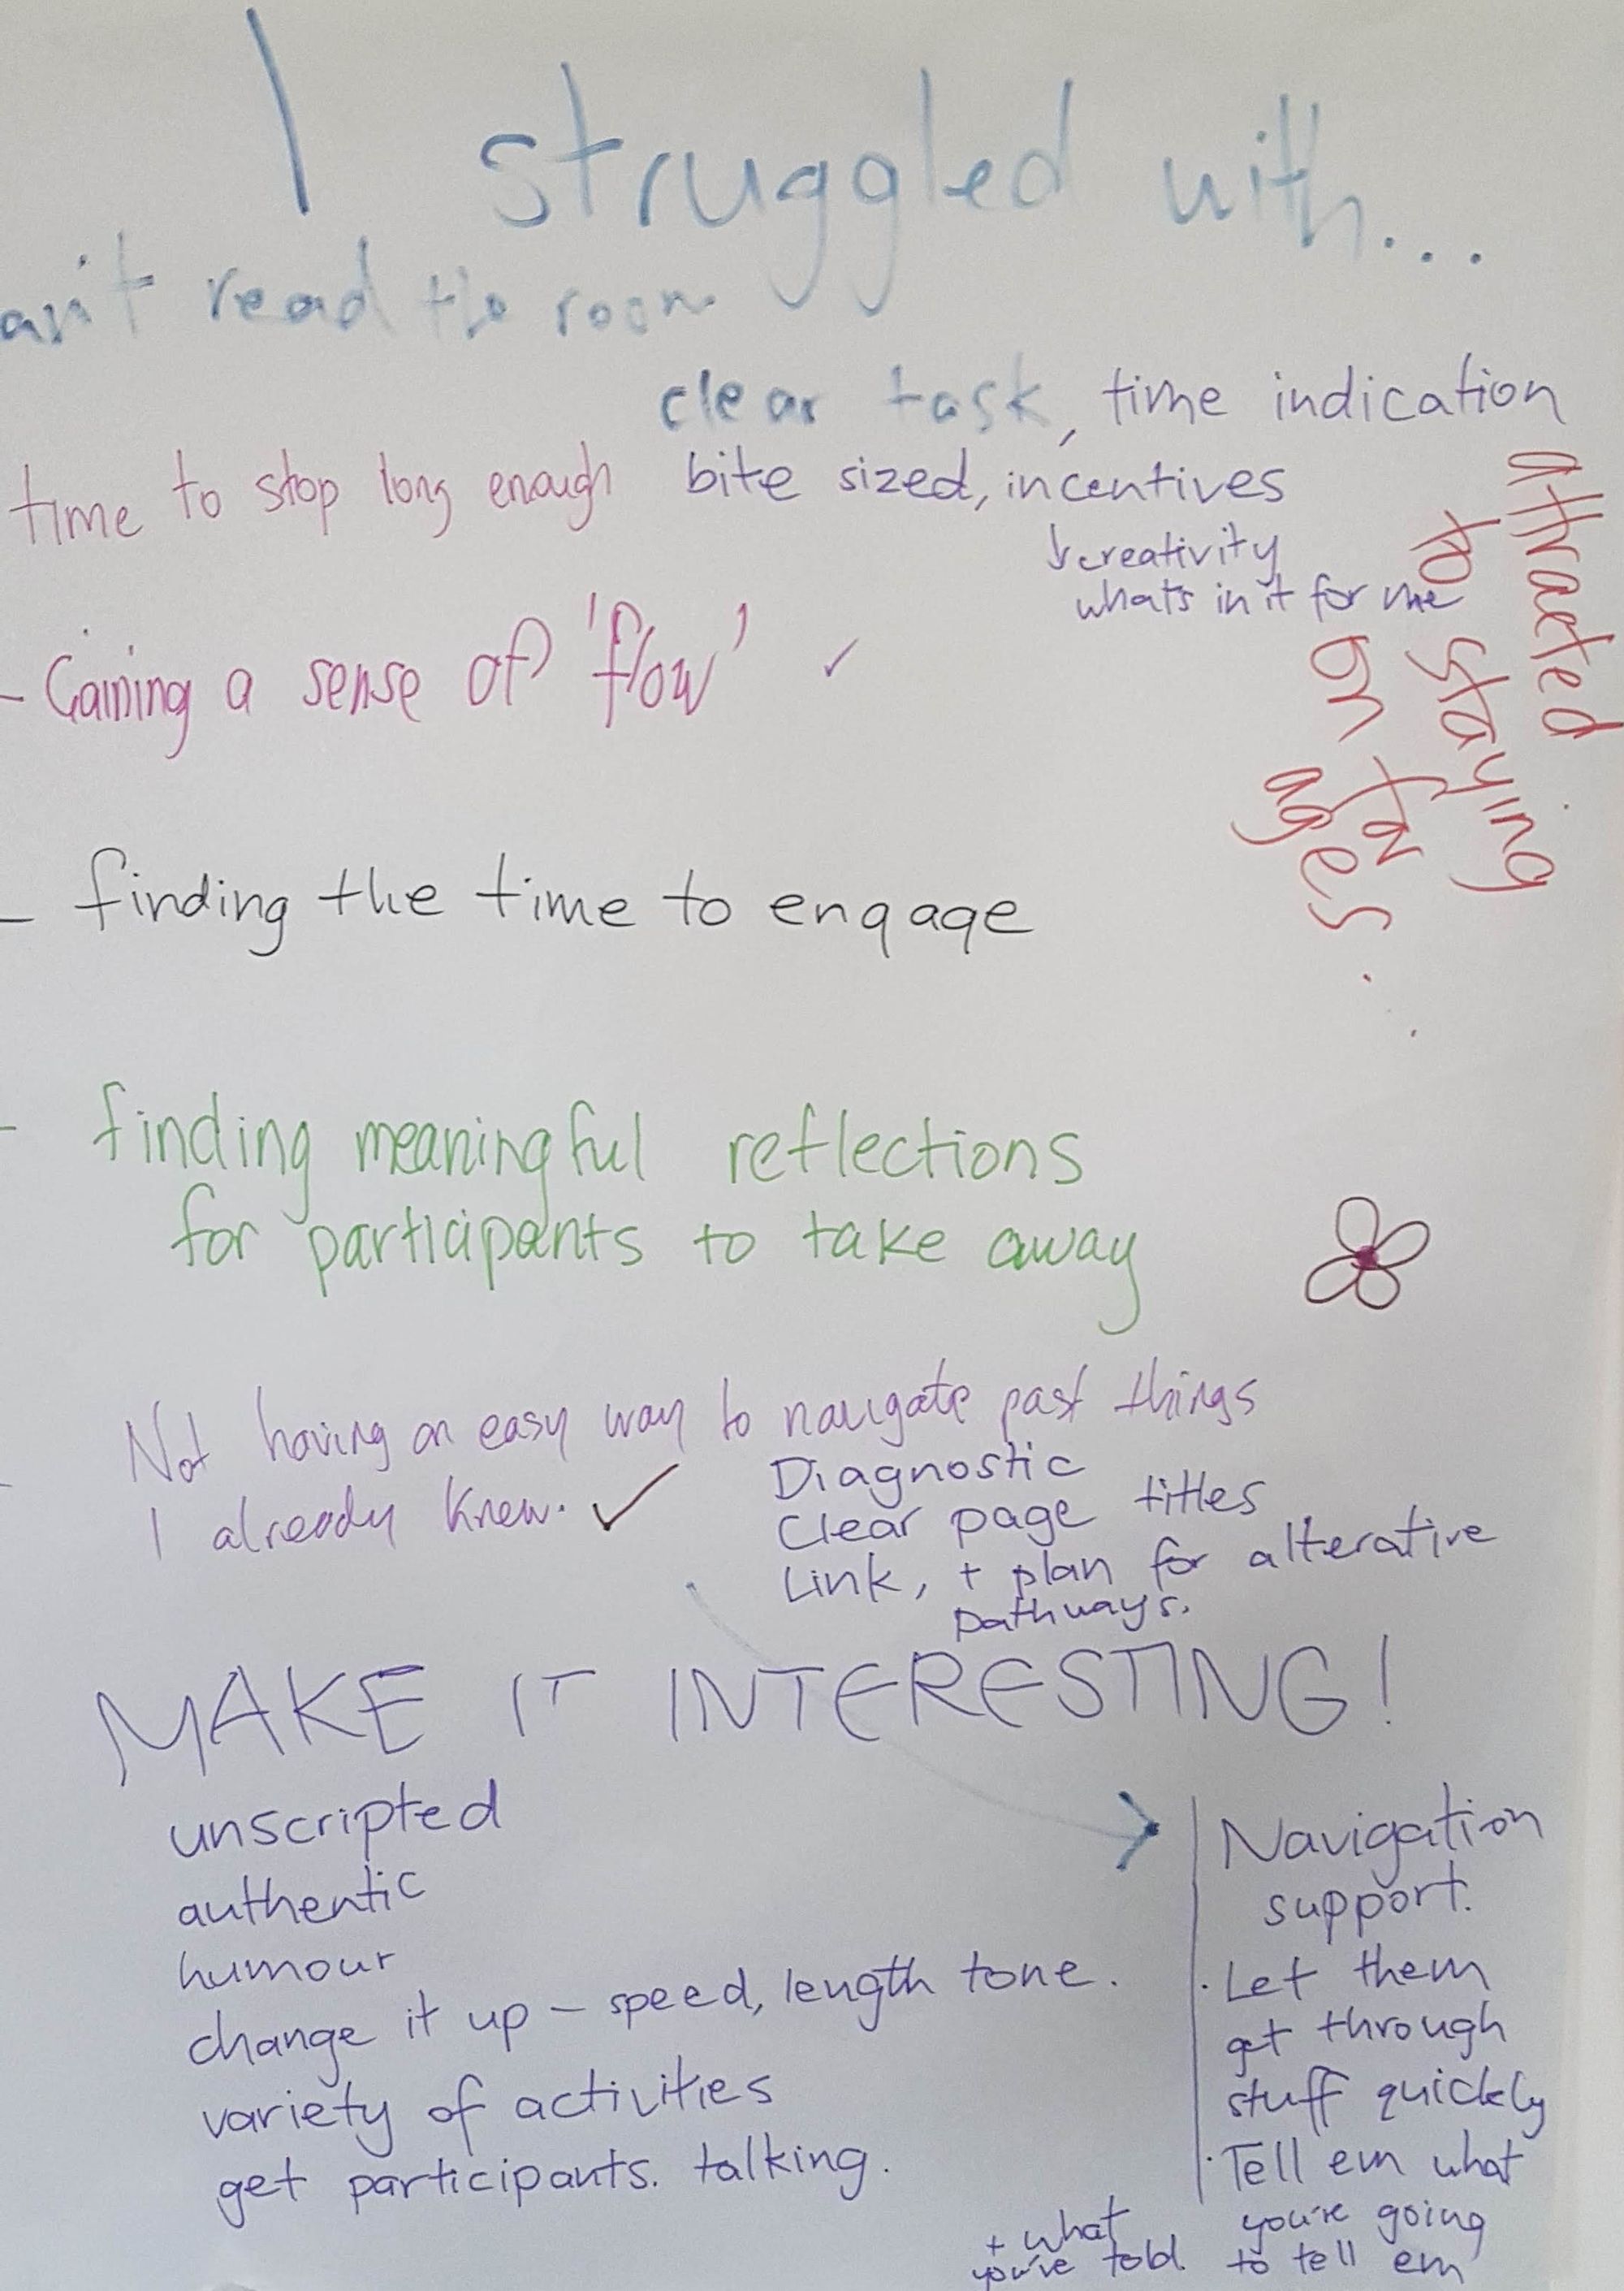 I struggled with...
an't read the room
clear task, time indication
time to stop long enough
bite sized, incentives
creativity
whats in it for me
attracted
to staying
on for
ages.
- Gaining a sense of 'flow' ✓
- finding the time to engage
- finding meaningful reflections
for participants to take away
Not having an easy way to navigate past things
I already knew. ✓
Diagnostic
Clear page titles
Link, + plan for alterative
pathways.
MAKE IT INTERESTING!
unscripted
authentic
humour
change it up - speed, length tone.
variety of activities
get participants. talking.
Navigation
support.
· Let them
get through
stuff quickly
· Tell em what
you're going
to tell em
+ what
you've told